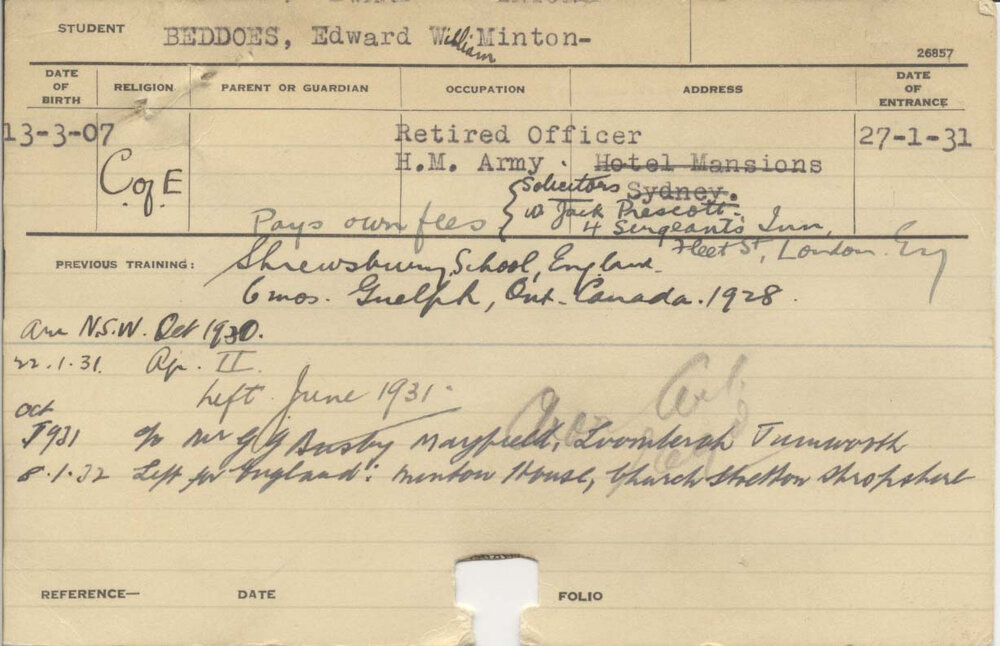 STUDENT BEDDOES, Edward William Minton- 26857
DATE OF BIRTH RELIGION PARENT OR GUARDIAN OCCUPATION ADDRESS DATE OF ENTRANCE
13-3-07 Retired Officer 27-1-31
H.M. Army. Hotel Mansions
C of E Solicitors Sydney.
W. Jack Prescott
Pays own fees 4 Sergeants Inn,
Fleet St, London. Eng
PREVIOUS TRAINING: Shrewsbury School, England.
6 mos. Guelph, Ont. Canada. 1928.
Arr N.S.W. Oct 1930.
22.1.31. Ap. II.
Left June 1931.
Oct
1931 c/o Mr G G Busby Mayfield, Loomberah Tamworth
8.1.32 Left for England: Minton House, Church Stretton Shropshire
REFERENCE— DATE FOLIO